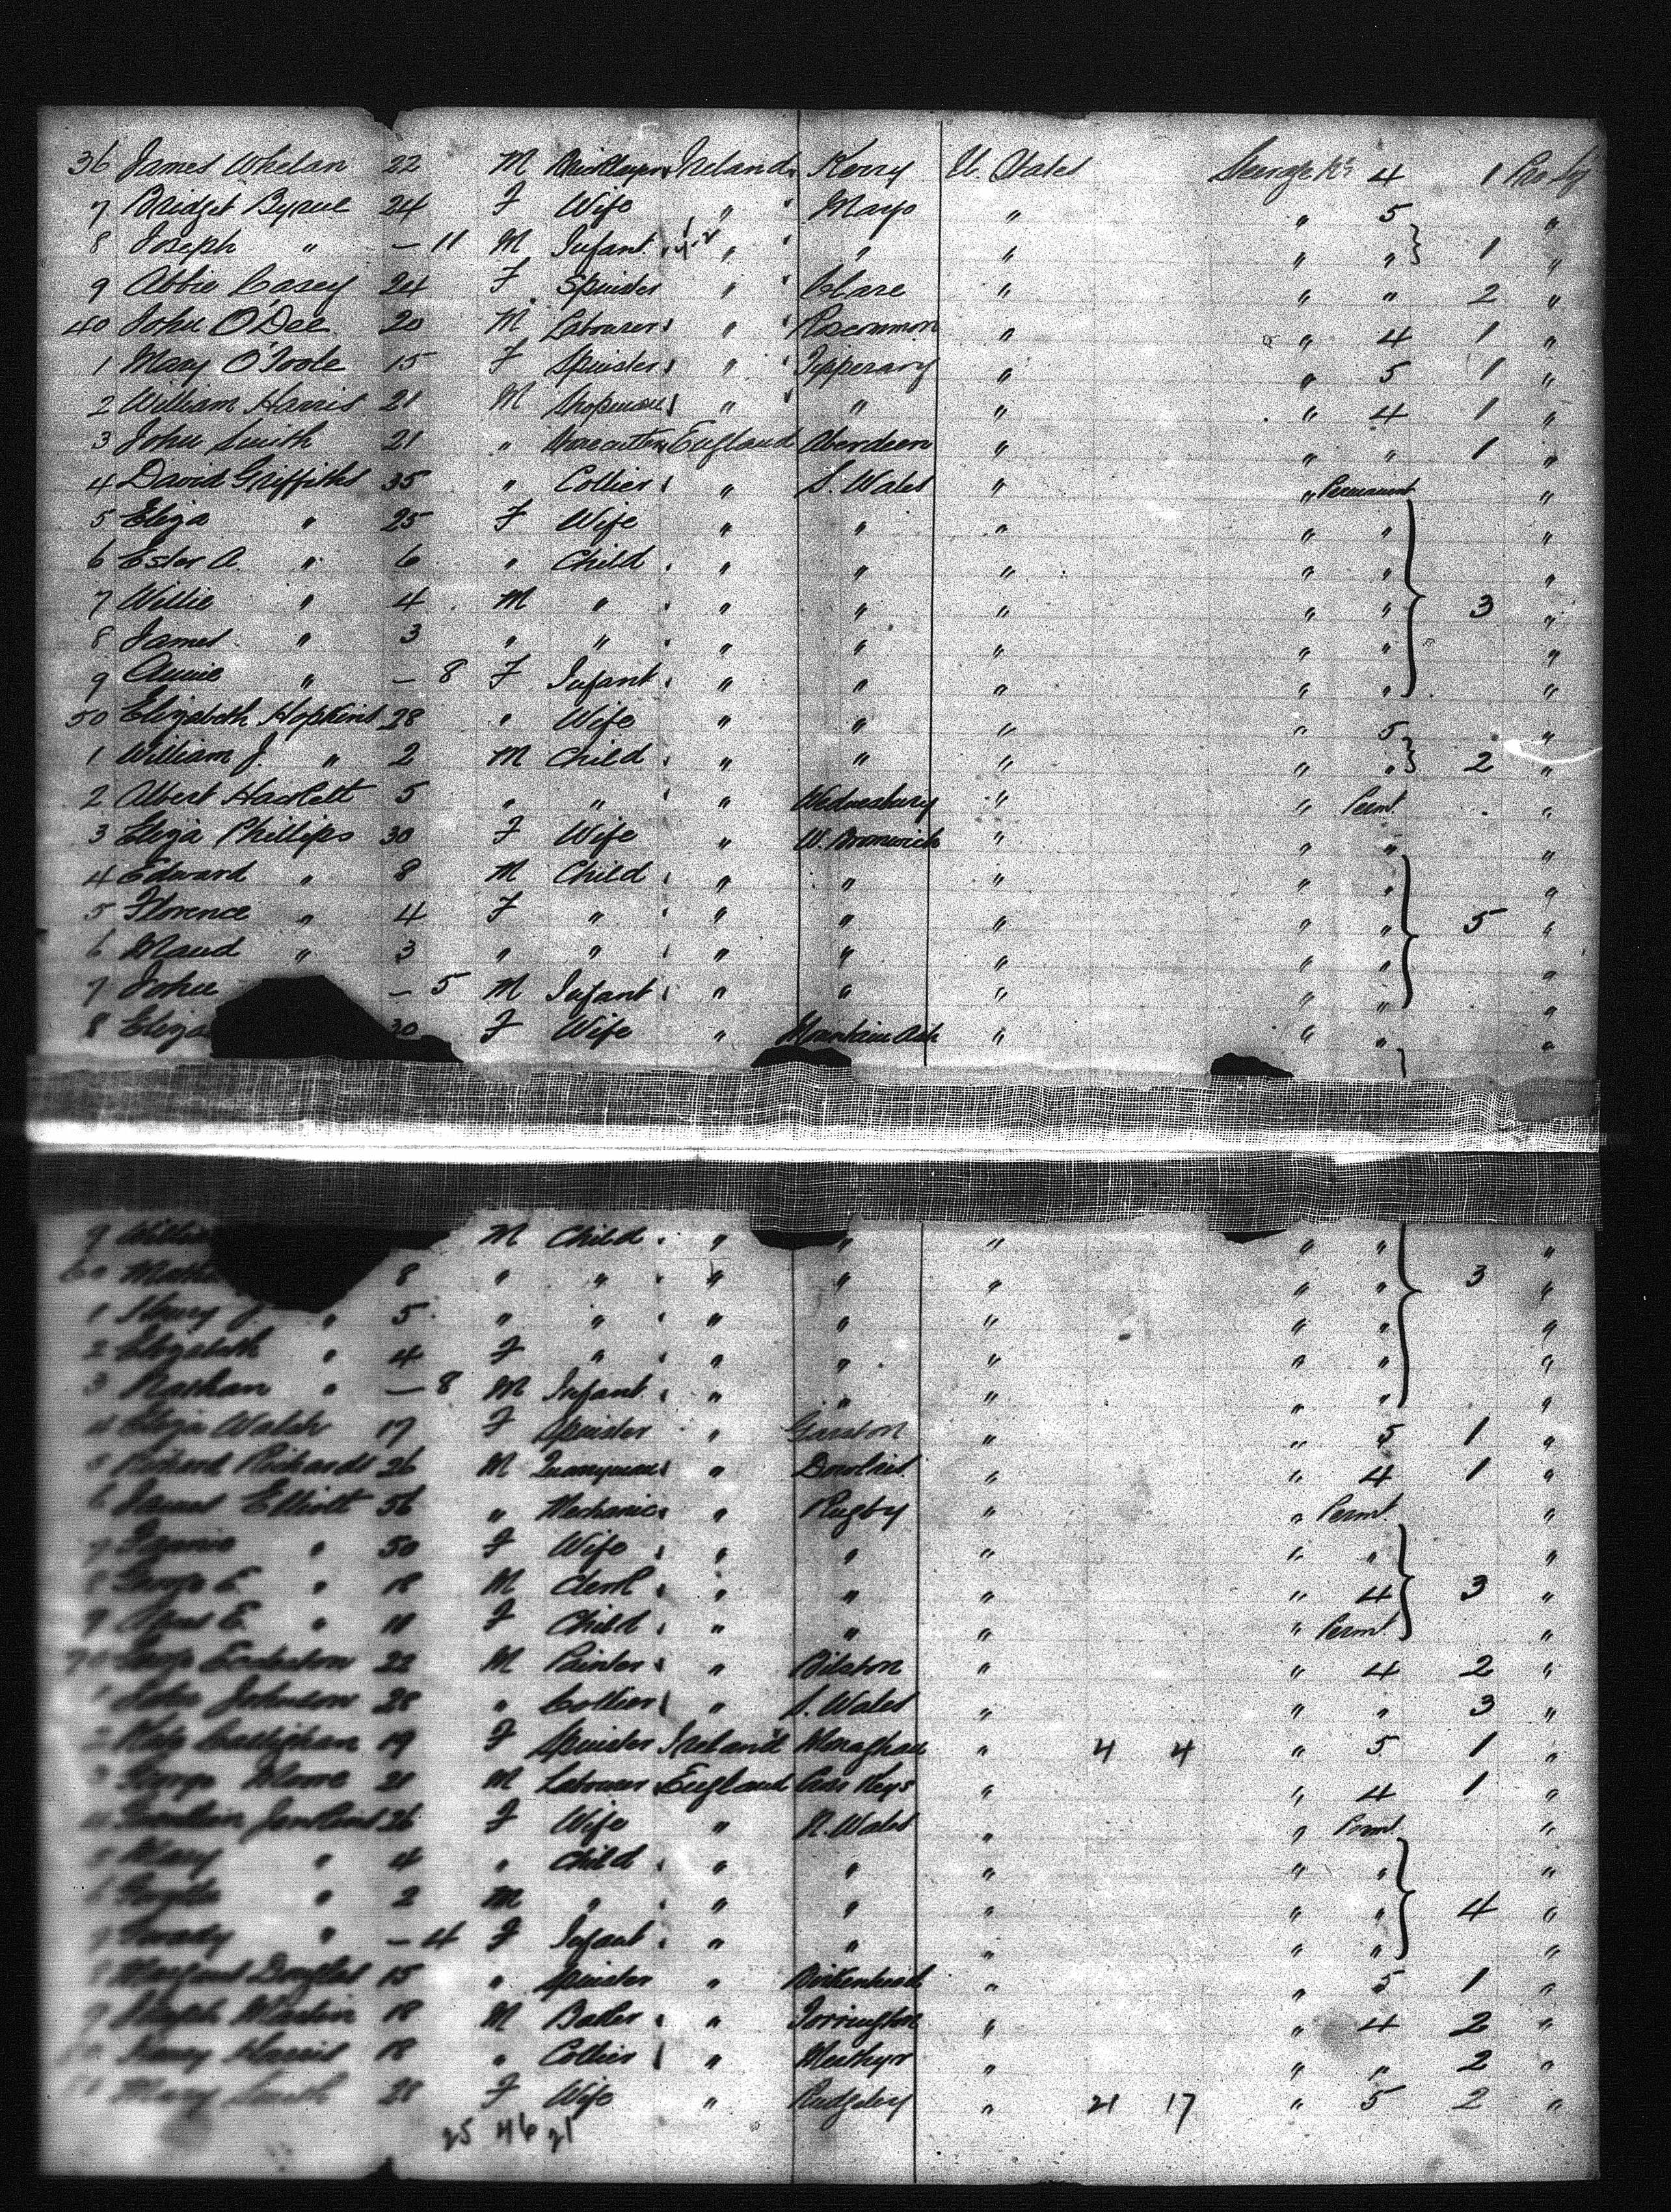 36 James Whelan 22 M Bricklayer Ireland Kerry U. States Steerage 4 1
7 Bridget Byrne 24 F Wife " Mayo " " 5 "
8 Joseph " — 11 M Infant " " " " " 1 "
9 Abbie Casey 24 F Spinster " Clare " " " 2 "
40 John O'Dee 20 M Labourer " Roscommon " " 4 1 "
1 Mary O'Toole 15 F Spinster " Tipperary " " 5 1 "
2 William Harris 21 M Shopman " " " " 4 1 "
3 John Smith 21 " England Aberdeen " " " 1 "
4 David Griffiths 35 " Collier " S. Wales " " Permanent "
5 Eliza " 25 F Wife " " " " " "
6 Ester A. " 6 " Child " " " " " "
7 Willie " 4 M " " " " " " 3 "
8 James " 3 " " " " " " " "
9 Annie " — 8 F Infant " " " " " "
50 Elizabeth Hopkins 28 " Wife " " " " 5 "
1 William J. " 2 M Child " " " " " 2 "
2 Albert Hackett 5 " " " Wednesbury " " Permt. "
3 Eliza Phillips 30 F Wife " W. Bromwich " " " "
4 Edward " 8 M Child " " " " " "
5 Florence " 4 F " " " " " " 5 "
6 Maud " 3 " " " " " " " "
7 John — 5 M Infant " " " " " "
8 Eliza 30 F Wife " Mountain Ash " " " "
9 M Child " " " " " "
60 8 " " " " " " " 3 "
1 Henry J. " 5 " " " " " " " "
2 Elizabeth " 4 F " " " " " " "
3 Nathan " — 8 M Infant " " " " " "
4 Eliza Walsh 17 F Spinster " Garston " " 5 1 "
5 Richard Richards 26 M Quarryman " Dowlais " " 4 1 "
6 James Elliott 56 " Mechanic " Rugby " " Permt. "
7 Fannie " 50 F Wife " " " " " "
8 George E. " 18 M Clerk " " " " 4 3 "
9 E. " 11 F Child " " " " Permt. "
70 George 22 M Painter " Bilston " " 4 2 "
1 John Johnson 28 " Collier " S. Wales " " " 3 "
2 Kate 19 F Spinster Ireland Monaghan " 4 4 " 5 1 "
3 George Moore 21 M Labourer England Cross Keys " " 4 1 "
4 26 F Wife " N. Wales " " Permt. "
5 Mary " 4 " Child " " " " " "
6 " 2 M " " " " " " 4 "
7 " — 4 F Infant " " " " " "
8 Margaret Douglas 15 " Spinster " Birkenhead " " 5 1 "
9 Joseph Martin 18 M Baker " Torrington " " 4 2 "
80 Harris 18 " Collier " Merthyr " " " 2 "
81 Mary Smith 28 F Wife " Rudgeley " 21 17 " 5 2 "
25 46 21